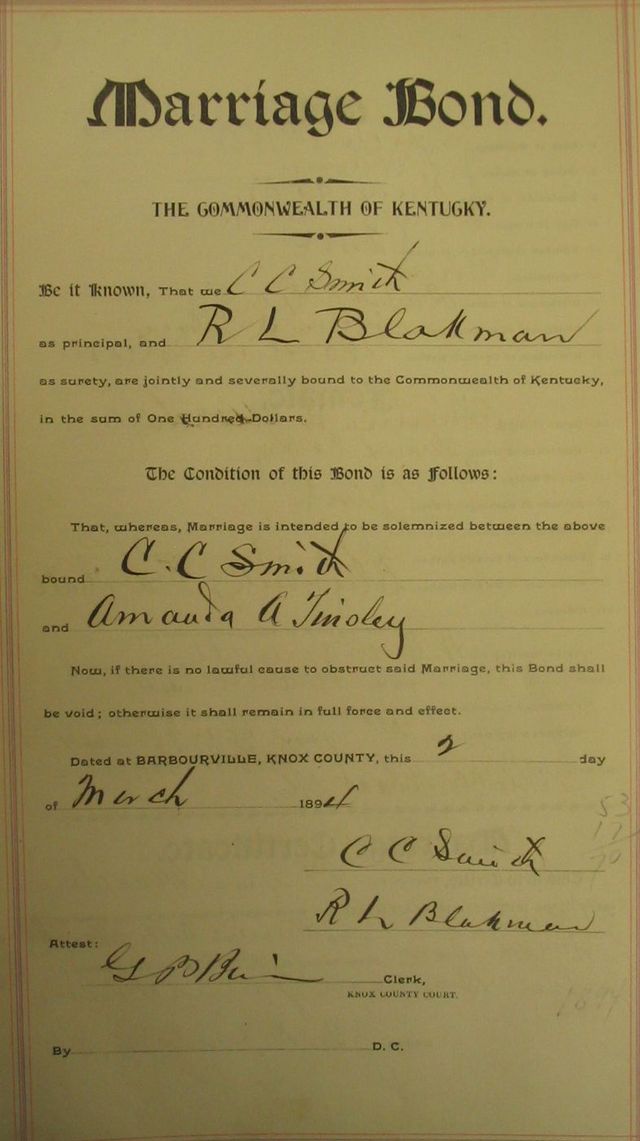 Marriage Bond.
THE COMMONWEALTH OF KENTUCKY.
Be it Known, That we C C Smith
as principal, and R L Blakman
as surety, are jointly and severally bound to the Commonwealth of Kentucky,
in the sum of One Hundred Dollars.
The Condition of this Bond is as Follows:
That, whereas, Marriage is intended to be solemnized between the above
bound C. C Smith
and Amanda A Tinsley
Now, if there is no lawful cause to obstruct said Marriage, this Bond shall
be void; otherwise it shall remain in full force and effect.
Dated at BARBOURVILLE, KNOX COUNTY, this 2 day
of March 1894
53
17
70
C C Smith
R L Blakman
Attest:
Clerk,
KNOX COUNTY COURT.
1894
By D. C.